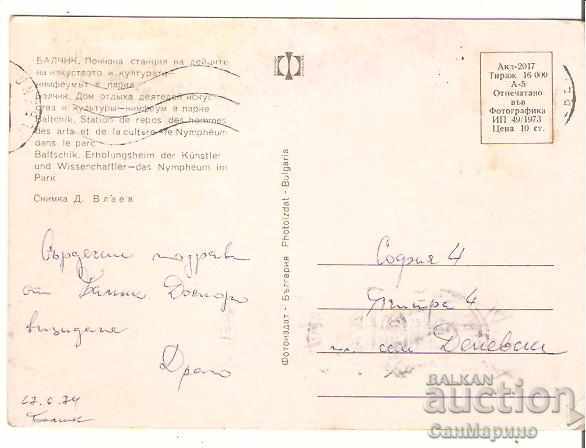 БАЛЧИК. Почивна станция на дейците
на изкуството и културата—
нимфеумът в парка
Балчик. Дом отдыха деятелей искус-
ства и культуры—нимфеум в парке
Baltchik. Station de repos des hommes
des arts et de la culture—le Nymphéum
dans le parc
Baltschik. Erholungsheim der Künstler
und Wissenschaftler—das Nympheum im
Park
Снимка Д. Влаев
Сърдечни поздрави
от Балчик Доскоро
виждане
Драго
27.6.74
Балчик
Фотоиздат - България Photoizdat - Bulgaria
Акд-2017
Тираж 16 000
А-5
Отпечатано
във
Фотографика
ИП 49/1973
Цена 10 ст.
София 4
4
сем Делевски
BALKAN
auction
СанМарино